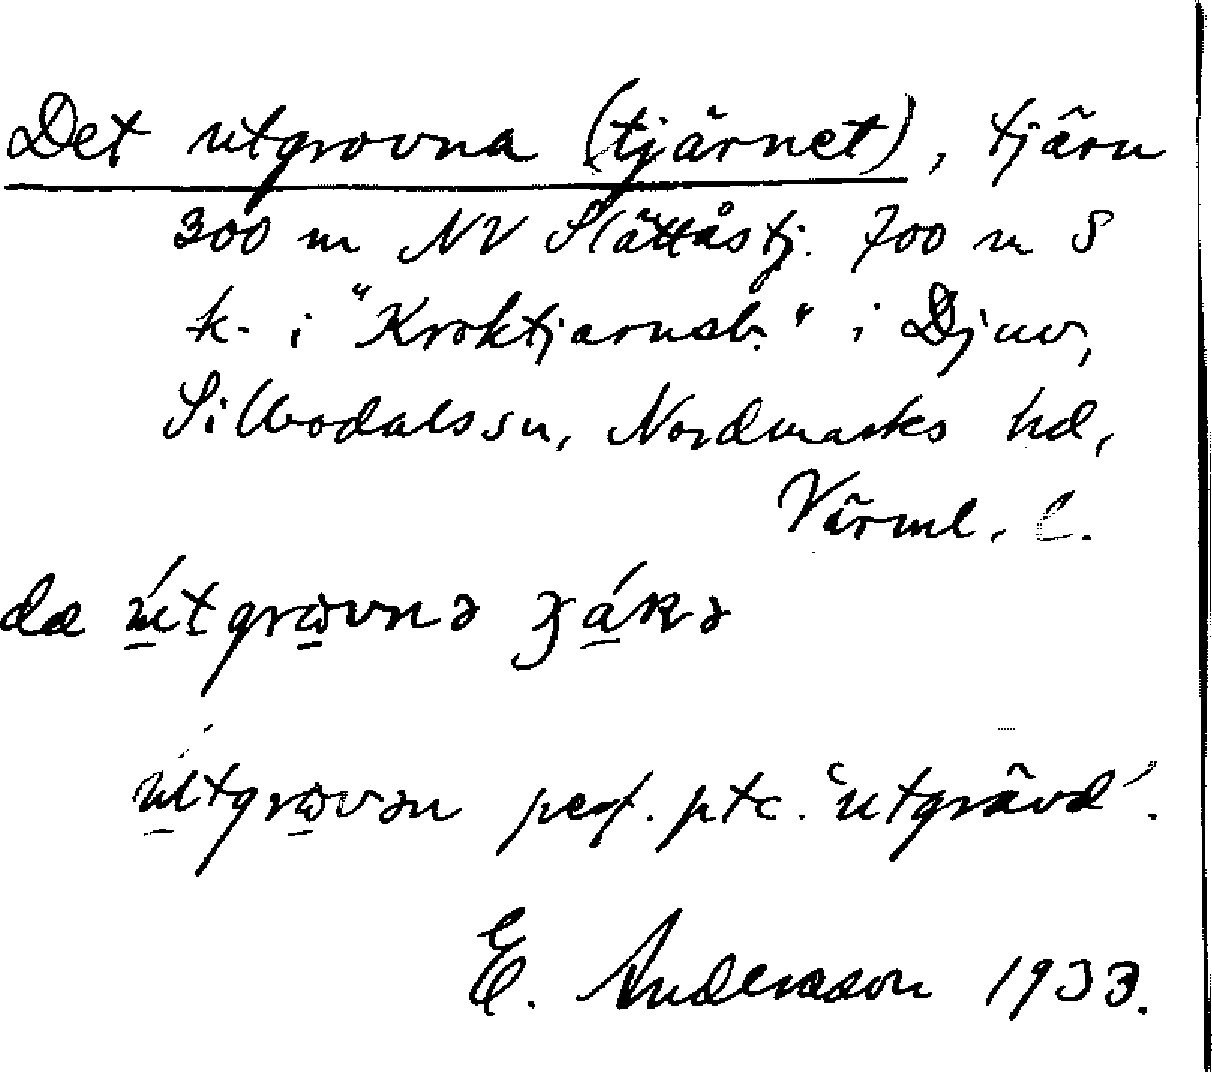 Det utgrovna (tjärnet), tjärn
300 m NV Slättåstj. 700 m S
k. i "Kroktjärnsb." i Djuv,
Silbodals sn, Nordmarks hd,
Värml. l.
dæ útgrɷvnə
útgrɷvən perf. ptc. 'utgrävd'.
E. Andersson 1933.